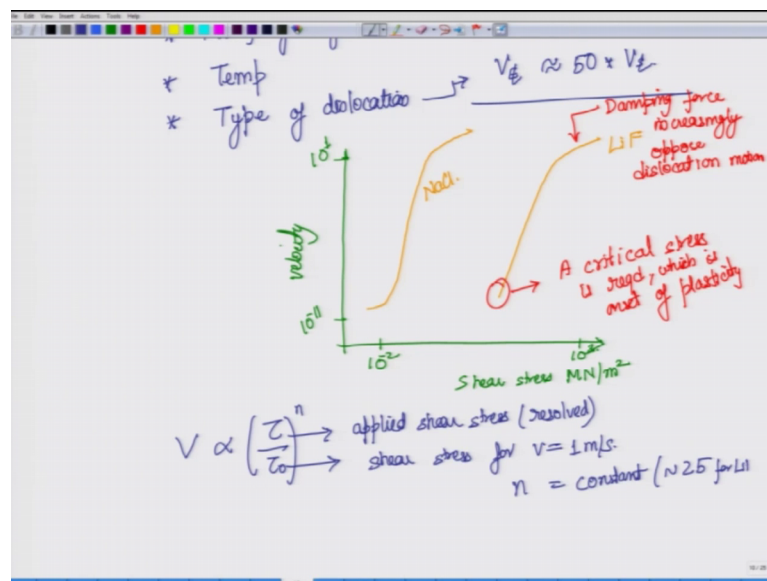 File Edit View Insert Actions Tools Help
* Temp
* Type of dislocation → V⊥ ≈ 50 * V
Damping force
increasingly
oppose
dislocation motion
LiF
NaCl.
10
velocity
10^-11
A critical stress
is reqd, which is
onset of plasticity
10^-2
Shear stress MN/m²
V ∝ (τ/τ₀)^n → applied shear stress (resolved)
→ shear stress for v = 1 m/s.
n = constant (~25 for Li